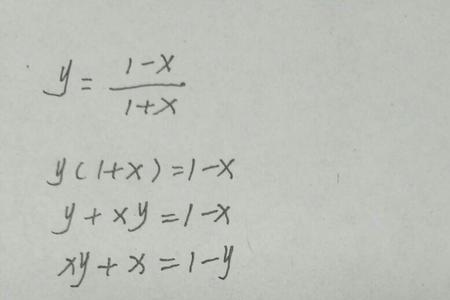 y = (1-x)/(1+x)
y(1+x)=1-x
y+xy=1-x
xy+x=1-y